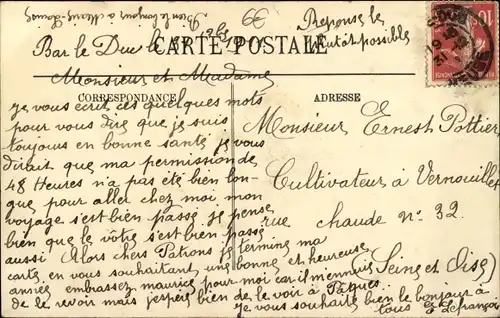 Bien le bonjour à Marie-Louise
66
Reponse le
plutôt possible
Bar le Duc le
CARTE POSTALE
Monsieur et Madame
CORRESPONDANCE
ADRESSE
je vous écrit ces quelques mots
pour vous dire que je suis
toujours en bonne santé je vous
dirait que ma permission de
48 Heures n'a pas été bien lon-
gue pour aller chez moi mon
voyage s'est bien passé je pense
bien que le vôtre s'est bien passé
aussi Alors chers Patrons je termine ma
carte, en vous souhaitant une bonne et heureuse
année embrassez maurice pour moi car il m'ennuie
de le revoir mais j'espère bien de le voir à Pâques.
je vous souhaite bien le bonjour à
tous G Lefrançois
Monsieur Ernest Pottier
Cultivateur à Vernouillet
rue chaude n° 32.
(Seine et Oise)
10